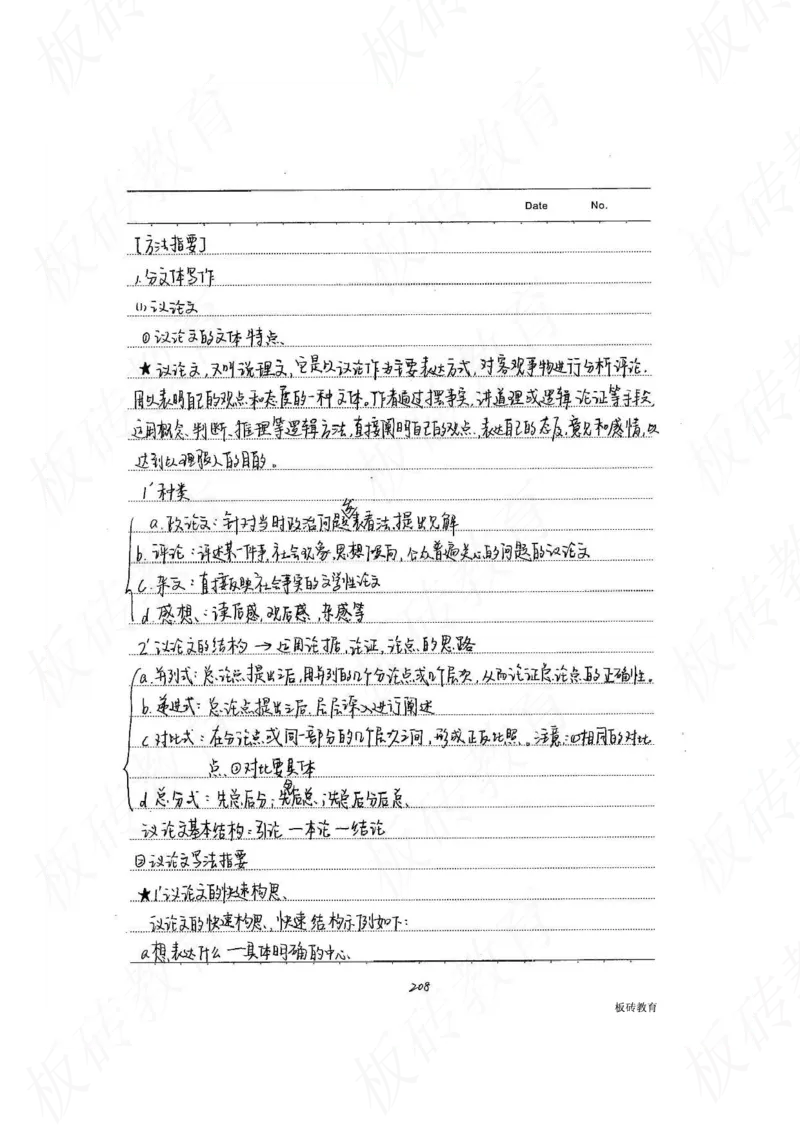 Date No.
[方法指要]
1.分文体写作
(1)议论文
①议论文的文体特点、
★议论文,又叫说理文,它是以议论作为主要表达方式,对客观事物进行分析评论.
用以表明自己的观点和态度的一种文体。作者通过摆事实,讲道理或逻辑论证等手段,
运用概念、判断、推理等逻辑方法,直接阐明自己的观点、表达自己的态度、意见和感情,以
达到以理服人的目的。
1'种类
a.政论文:针对当时政治问题发表看法,提出见解
b.评论:评述某一件事,社会现象,思想倾向,公众普遍关心的问题的议论文
c.杂文:直接反映社会事实的文学性论文
d.感想、:读后感,观后感,杂感等
2'议论文的结构→运用论据,论证,论点的思路
a.并列式:总论点提出之后,用并列的几个分论点或几个层次,从而论证总论点的正确性。
b.递进式:总论点提出之后,层层深入进行阐述
c.对比式:在分论点或同一部分的几个层次之间,形成正反比照。注意:①相同的对比
点、②对比要具体
d.总分式:先总后分;先分后总;先总后分后总、
议论文基本结构:引论一本论一结论
②议论文写法指要
★1'议论文的快速构思、
议论文的快速构思、快速结构示例如下:
a.想表达什么一具体明确的中心、
208
板砖教育